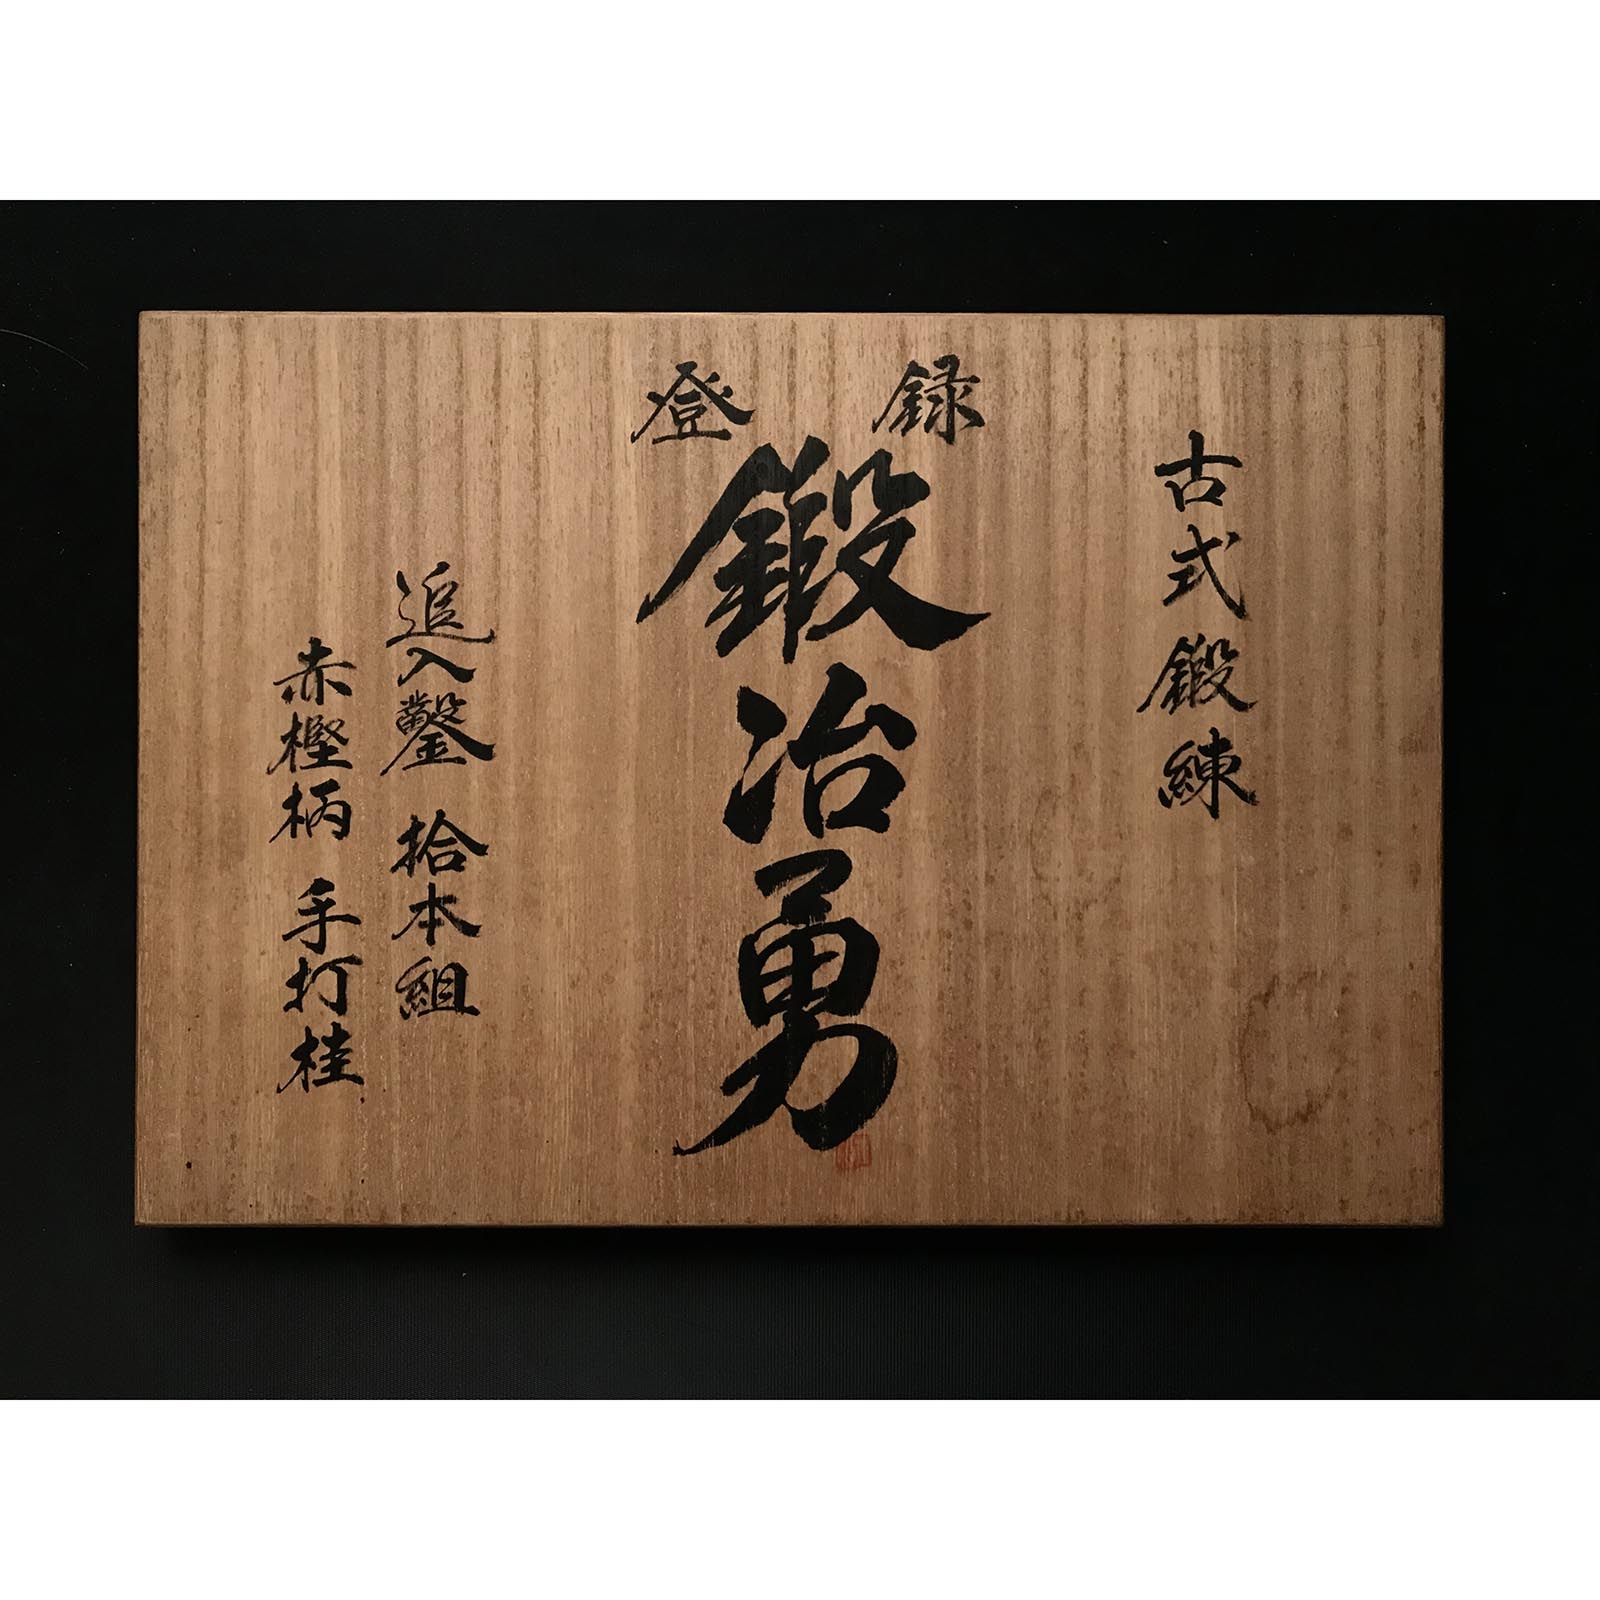 古式鍛練
登録
鍛冶勇
追入鑿 拾本組
赤樫柄 手打桂